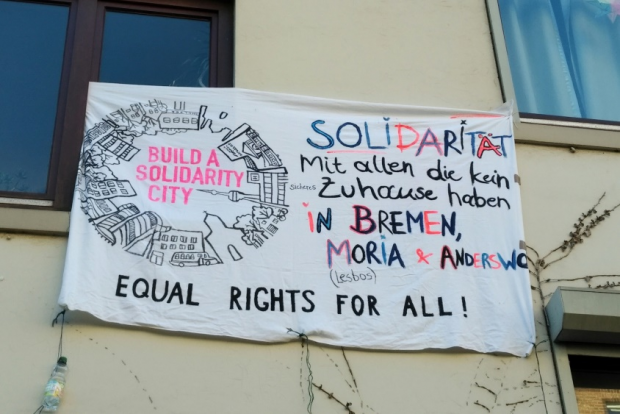 BUILD A
SOLIDARITY
CITY
SOLiDARiTÄT
Mit allen die kein
sicheres
Zuhause haben
iN BREMEN,
MORiA & ANDERSWO
(Lesbos)
EQUAL RIGHTS FOR ALL!